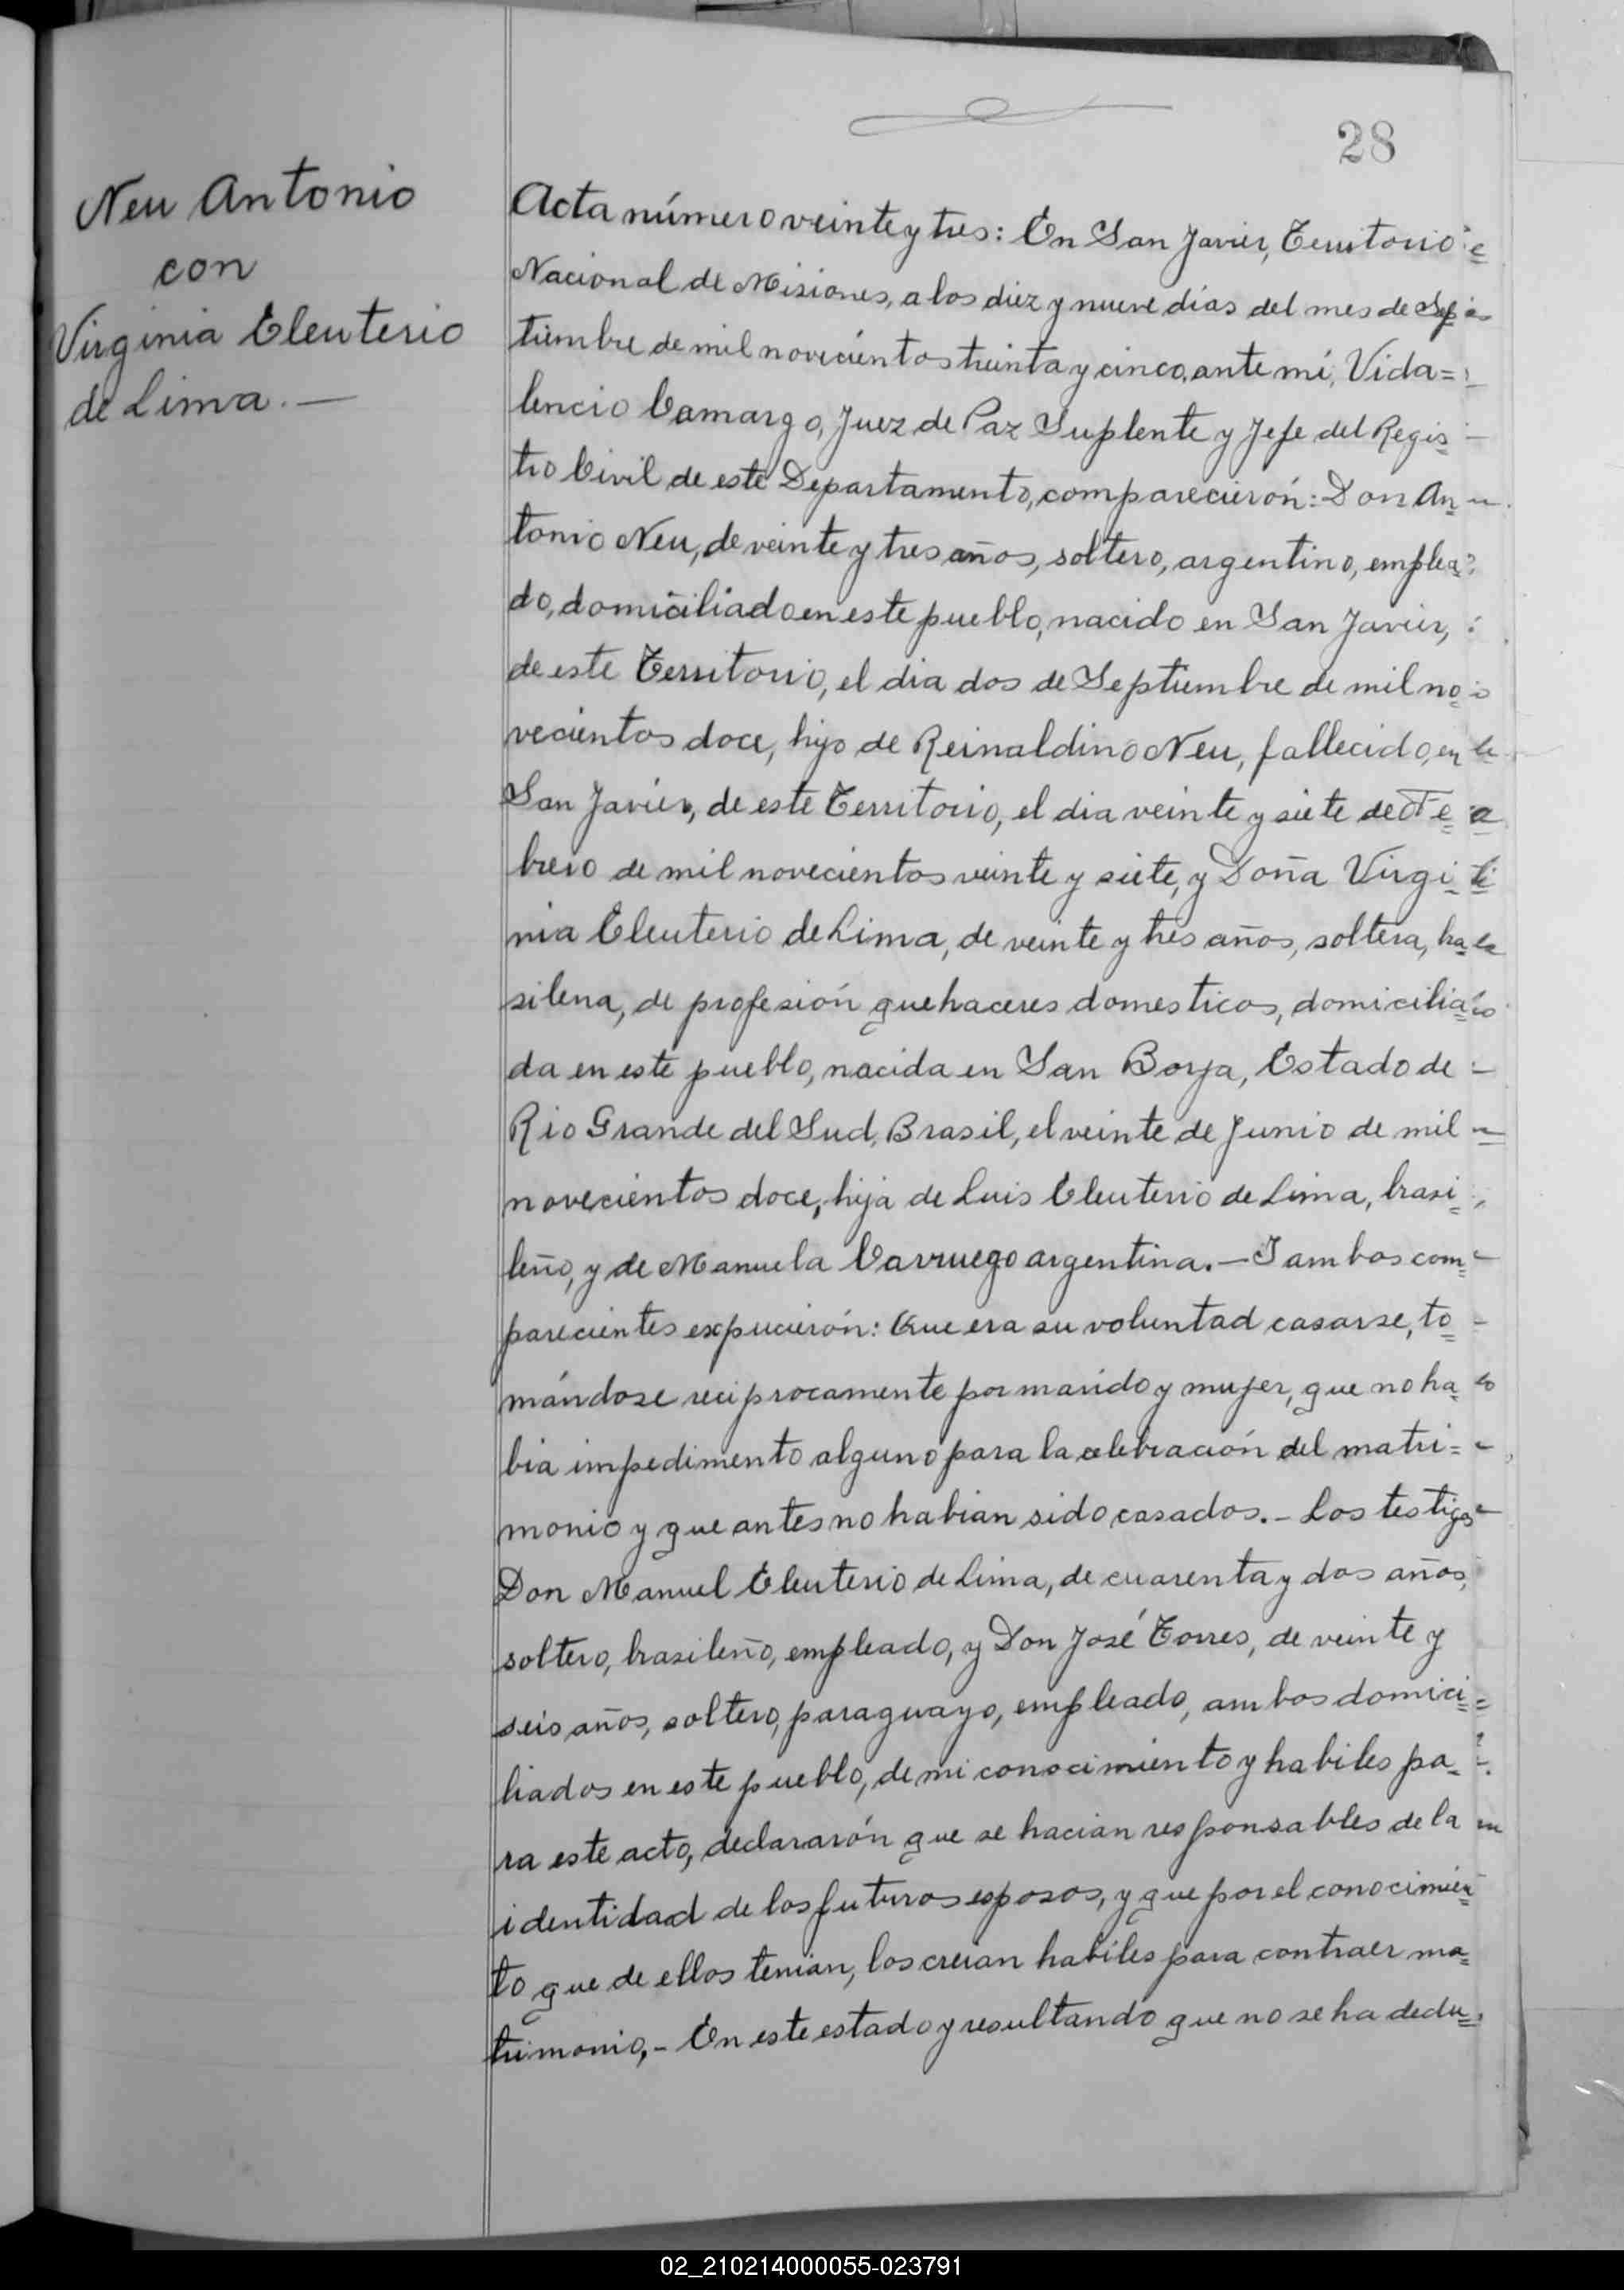 28
Neu Antonio
con
Virginia Eleuterio
de Lima. —
Acta número veinte y tres: En San Javier, Territorio
Nacional de Misiones, a los diez y nueve días del mes de Sep
tiembre de mil novecientos treinta y cinco, ante mí, Vida=
lencio Camargo, Juez de Paz Suplente y Jefe del Regis=
tro Civil de este Departamento, comparecierón: Don An=
tonio Neu, de veinte y tres años, soltero, argentino, emplea=
do, domiciliado en este pueblo, nacido en San Javier,
de este Territorio, el dia dos de Septiembre de mil no=
vecientos doce, hijo de Reinaldino Neu, fallecido, en
San Javier, de este Territorio, el dia veinte y siete de Fe=
brero de mil novecientos veinte y siete, y Doña Virgi=
nia Eleuterio de Lima, de veinte y tres años, soltera, bra=
silena, de profesión quehaceres domesticos, domicilia=
da en este pueblo, nacida en San Borja, Estado de
Rio Grande del Sud, Brasil, el veinte de Junio de mil
novecientos doce, hija de Luis Eleuterio de Lima, brasi=
leño, y de Manuela Carruego argentina. — I ambos com=
parecientes expucierón: Que era su voluntad casarse, to=
mándose reciprocamente por marido y mujer, que no ha=
bia impedimento alguno para la celebración del matri=
monio y que antes no habian sido casados. — Los testigos
Don Manuel Eleuterio de Lima, de cuarenta y dos años,
soltero, brasileño, empleado, y Don José Torres, de veinte y
seis años, soltero, paraguayo, empleado, ambos domici=
liados en este pueblo, de mi conocimiento y habiles pa=
ra este acto, declararón que se hacian responsables de la
identidad de los futuros esposos, y que por el conocimien=
to que de ellos tenian, los creian habiles para contraer ma=
trimonio, — En este estado y resultando que no se ha dedu=
02_210214000055-023791